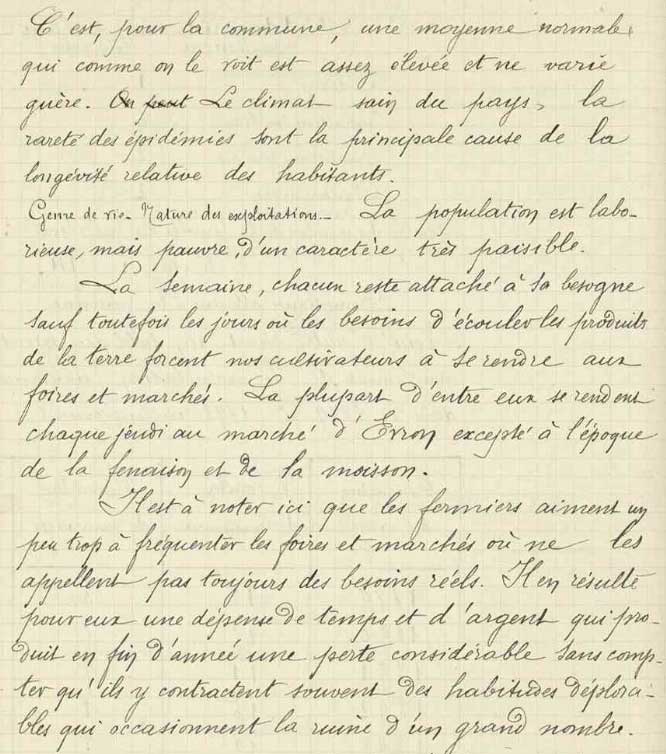 C'est, pour la commune, une moyenne normale
qui comme on le voit est assez élevée et ne varie
guère. On peut Le climat sain du pays, la
rareté des épidémies sont la principale cause de la
longévité relative des habitants.
Genre de vie. Nature des exploitations.- La population est labo-
rieuse, mais pauvre, d'un caractère très paisible.
La semaine, chacun reste attaché à sa besogne
sauf toutefois les jours où les besoins d'écouler les produits
de la terre forcent nos cultivateurs à se rendre aux
foires et marchés. La plupart d'entre eux se rendent
chaque jeudi au marché d'Evron excepté à l'époque
de la fenaison et de la moisson.
Il est à noter ici que les fermiers aiment un
peu trop à fréquenter les foires et marchés où ne les
appellent pas toujours des besoins réels. Il en résulte
pour eux une dépense de temps et d'argent qui pro-
duit en fin d'année une perte considérable sans comp-
ter qu'ils y contractent souvent des habitudes déplora-
bles qui occasionnent la ruine d'un grand nombre.